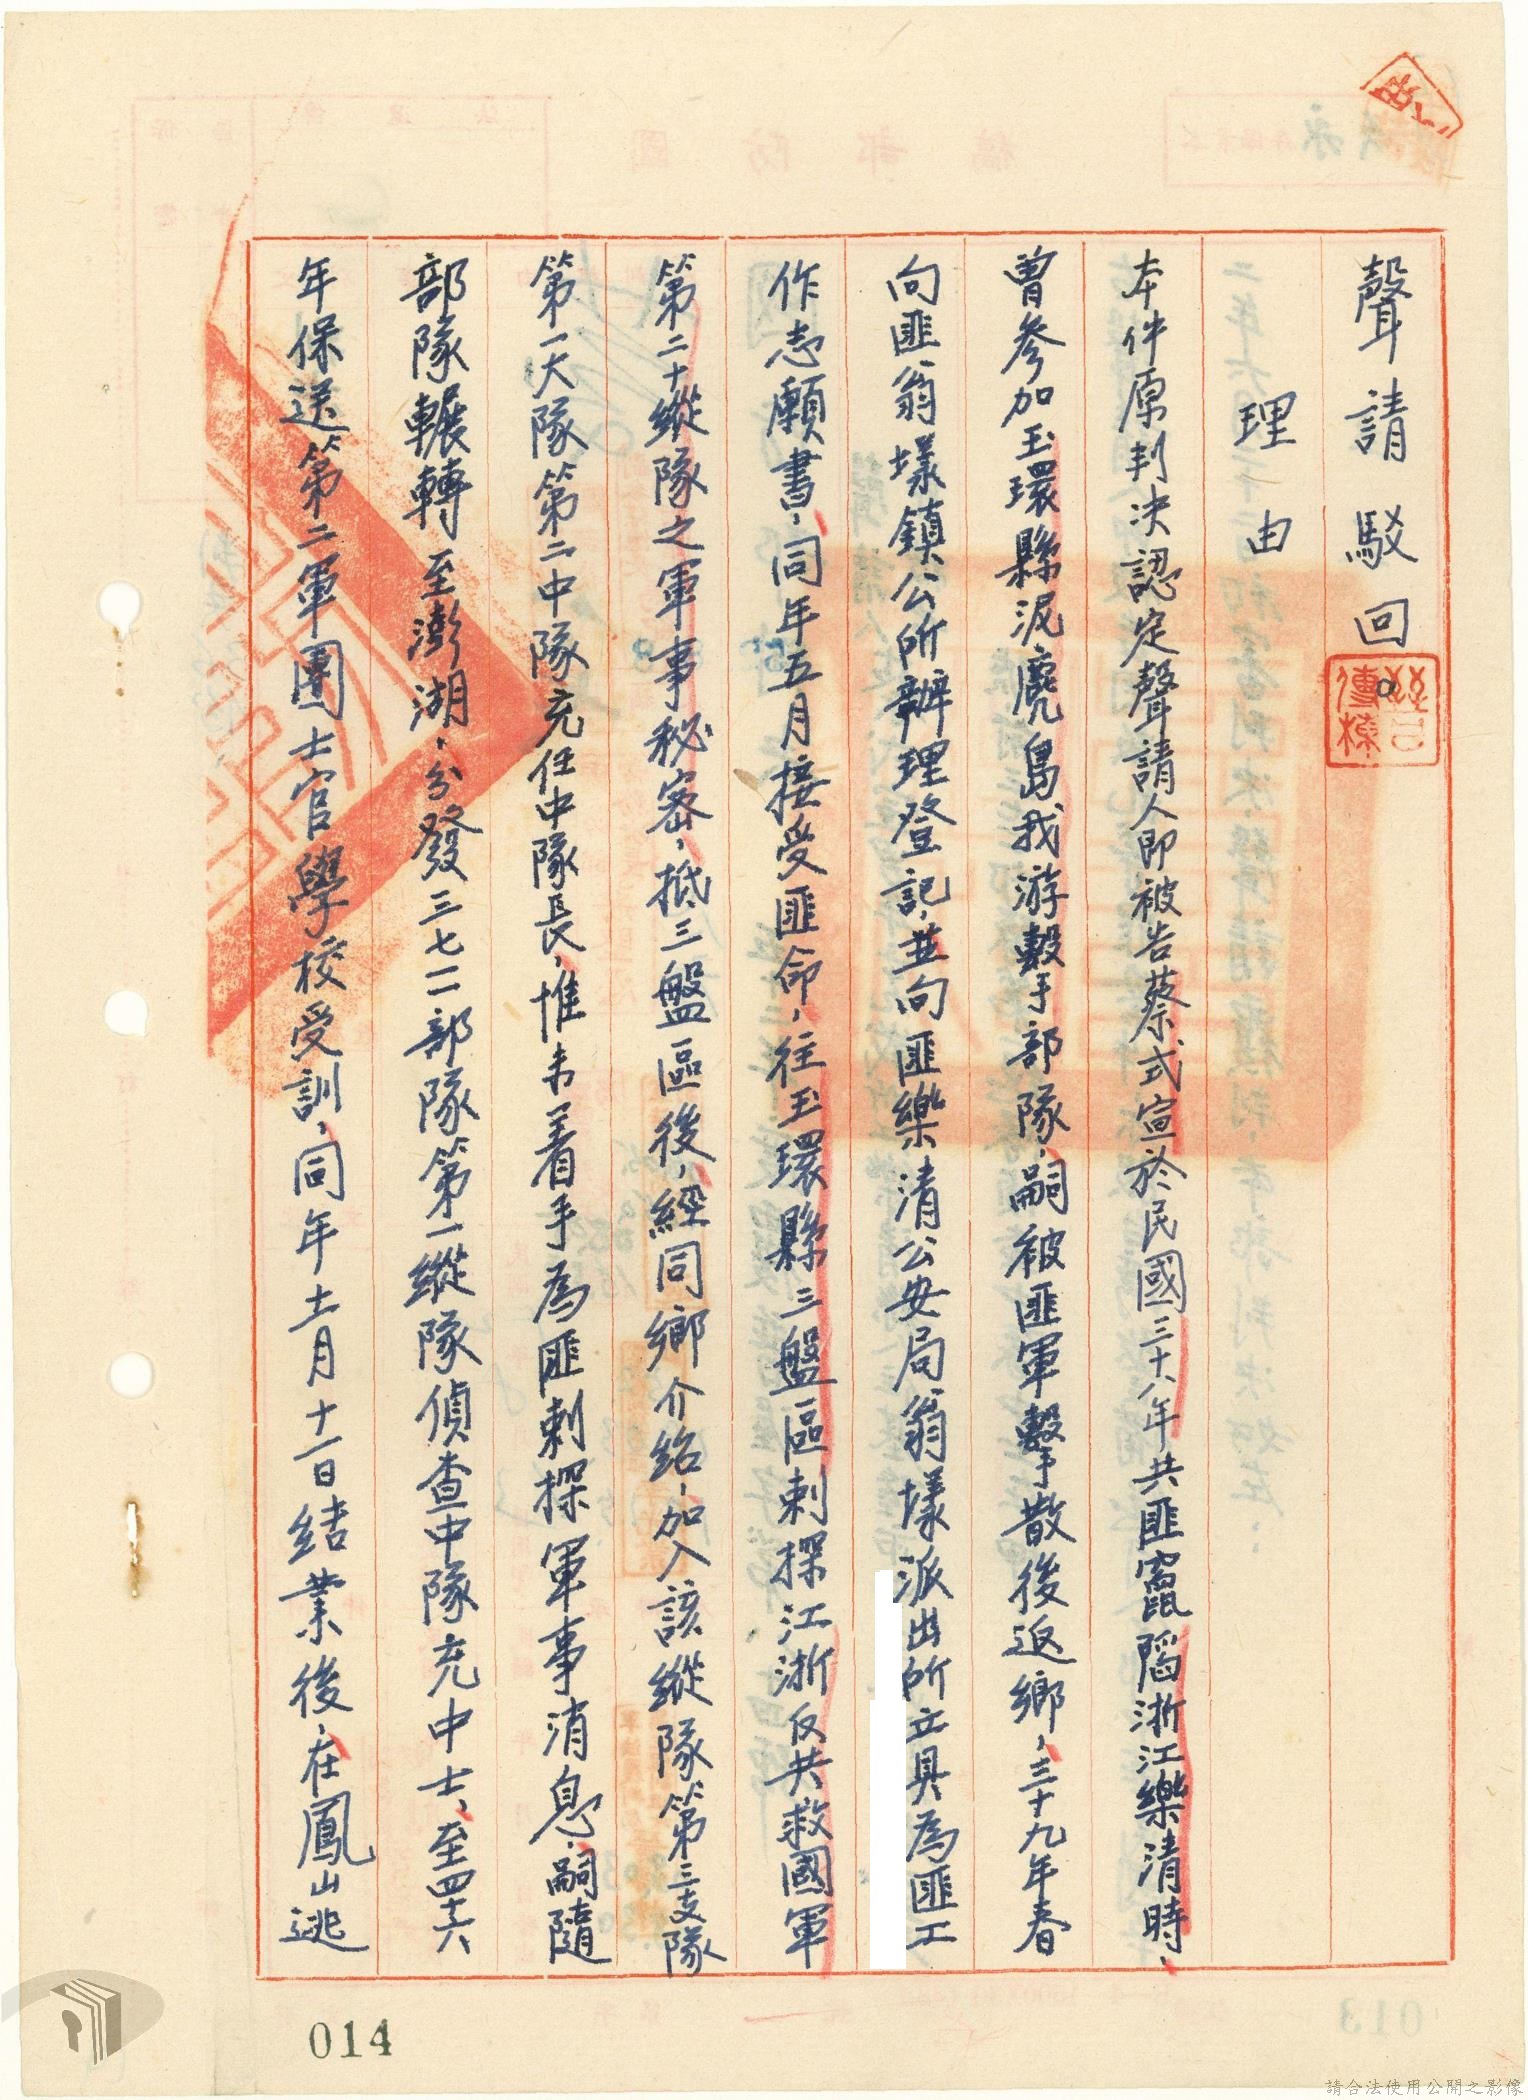 聲請駁回。
理由
本件原判決認定聲請人即被告蔡式宣於民國三十八年共匪竄陷浙江樂清時，
曾參加玉環縣泥麂島我游擊部隊，嗣被匪軍擊散後返鄉，三十九年春
向匪翁垟鎮公所辦理登記，並向匪樂清公安局翁垟派出所立具為匪工
作志願書，同年五月接受匪命，往玉環縣三盤區刺探江浙反共救國軍
第二十縱隊之軍事秘密，抵三盤區後，經同鄉介紹，加入該縱隊第三支隊
第一大隊第二中隊充任中隊長，惟未着手為匪刺探軍事消息，嗣隨
部隊輾轉至澎湖，分發三七一一部隊第一縱隊偵查中隊充中士，至四十六
年保送第二軍團士官學校受訓，同年十一月十一日結業後，在鳳山逃
014
013
請合法使用公開之影像